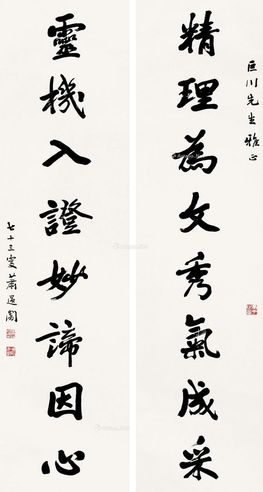 巨川先生雅正
精理為文秀氣成采
靈機入證妙諦因心
七十三叟蕭退闇